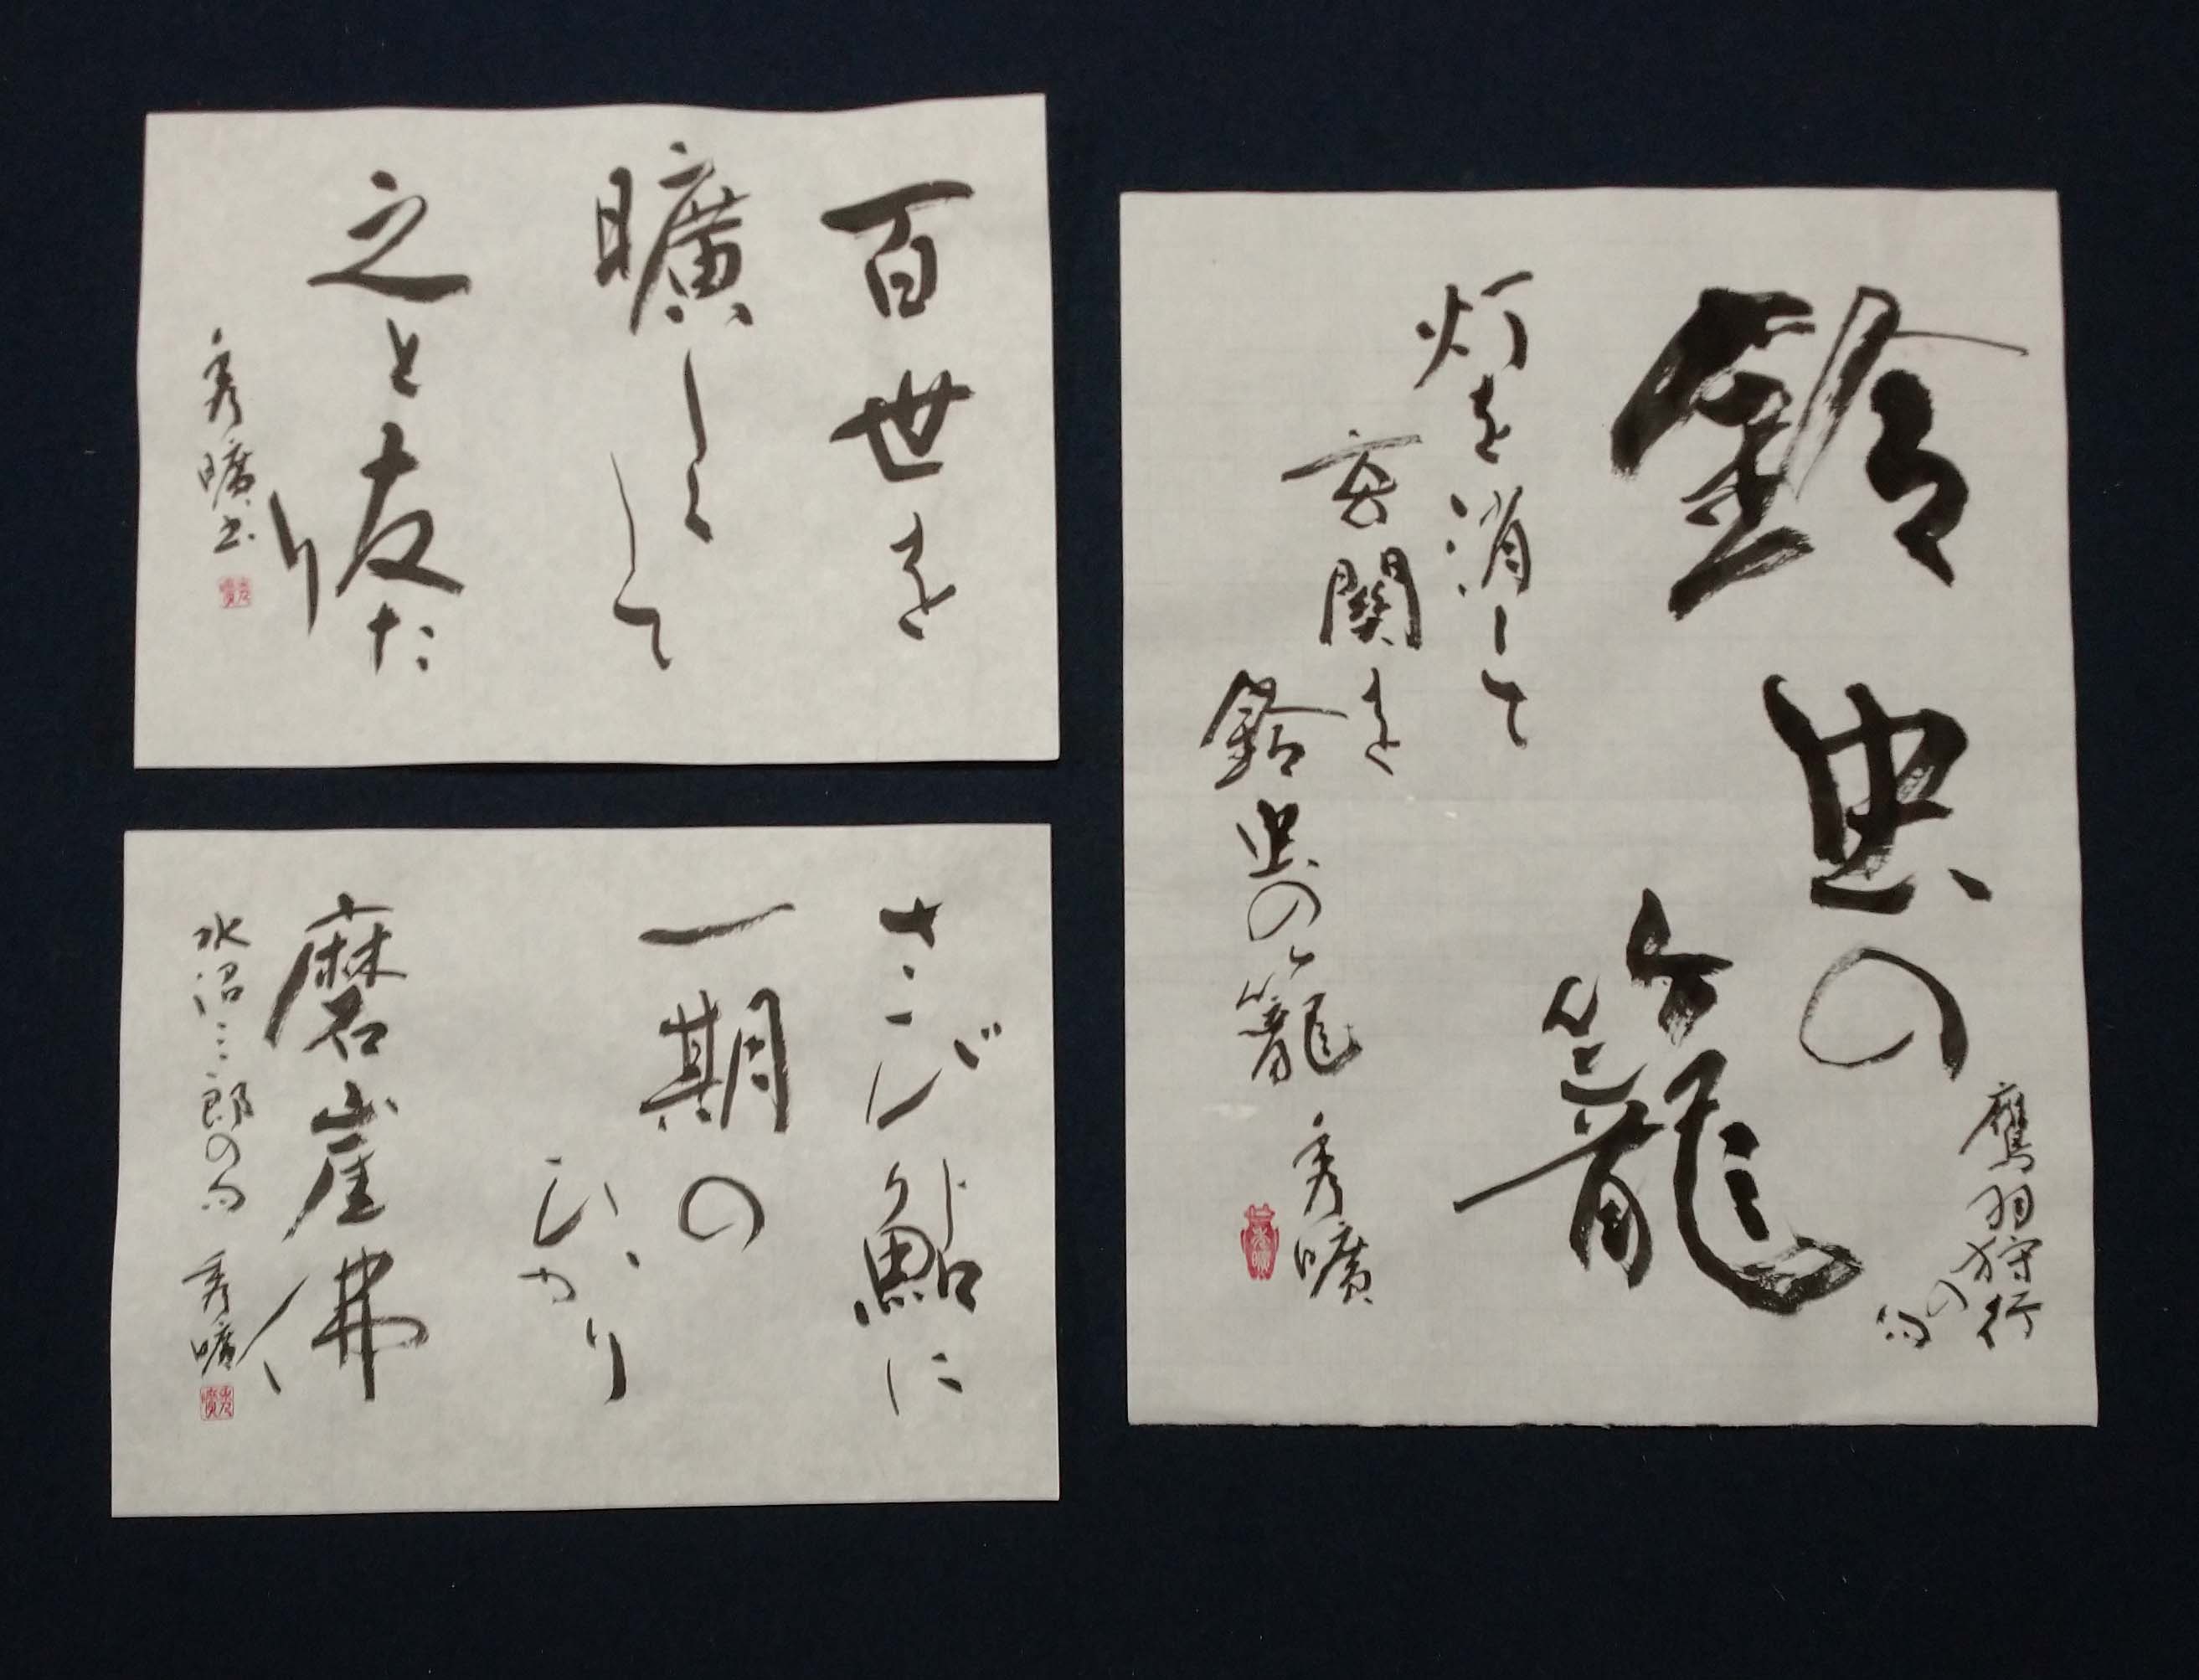 鈴虫の
籠
鷹羽狩行
の句
灯を消して
玄関を
鈴虫の籠
秀曠
百世を
曠しくして
之と友た
り
秀曠書
さび鮎に
一期の
ひかり
磨崖佛
水沼三郎の句 秀曠